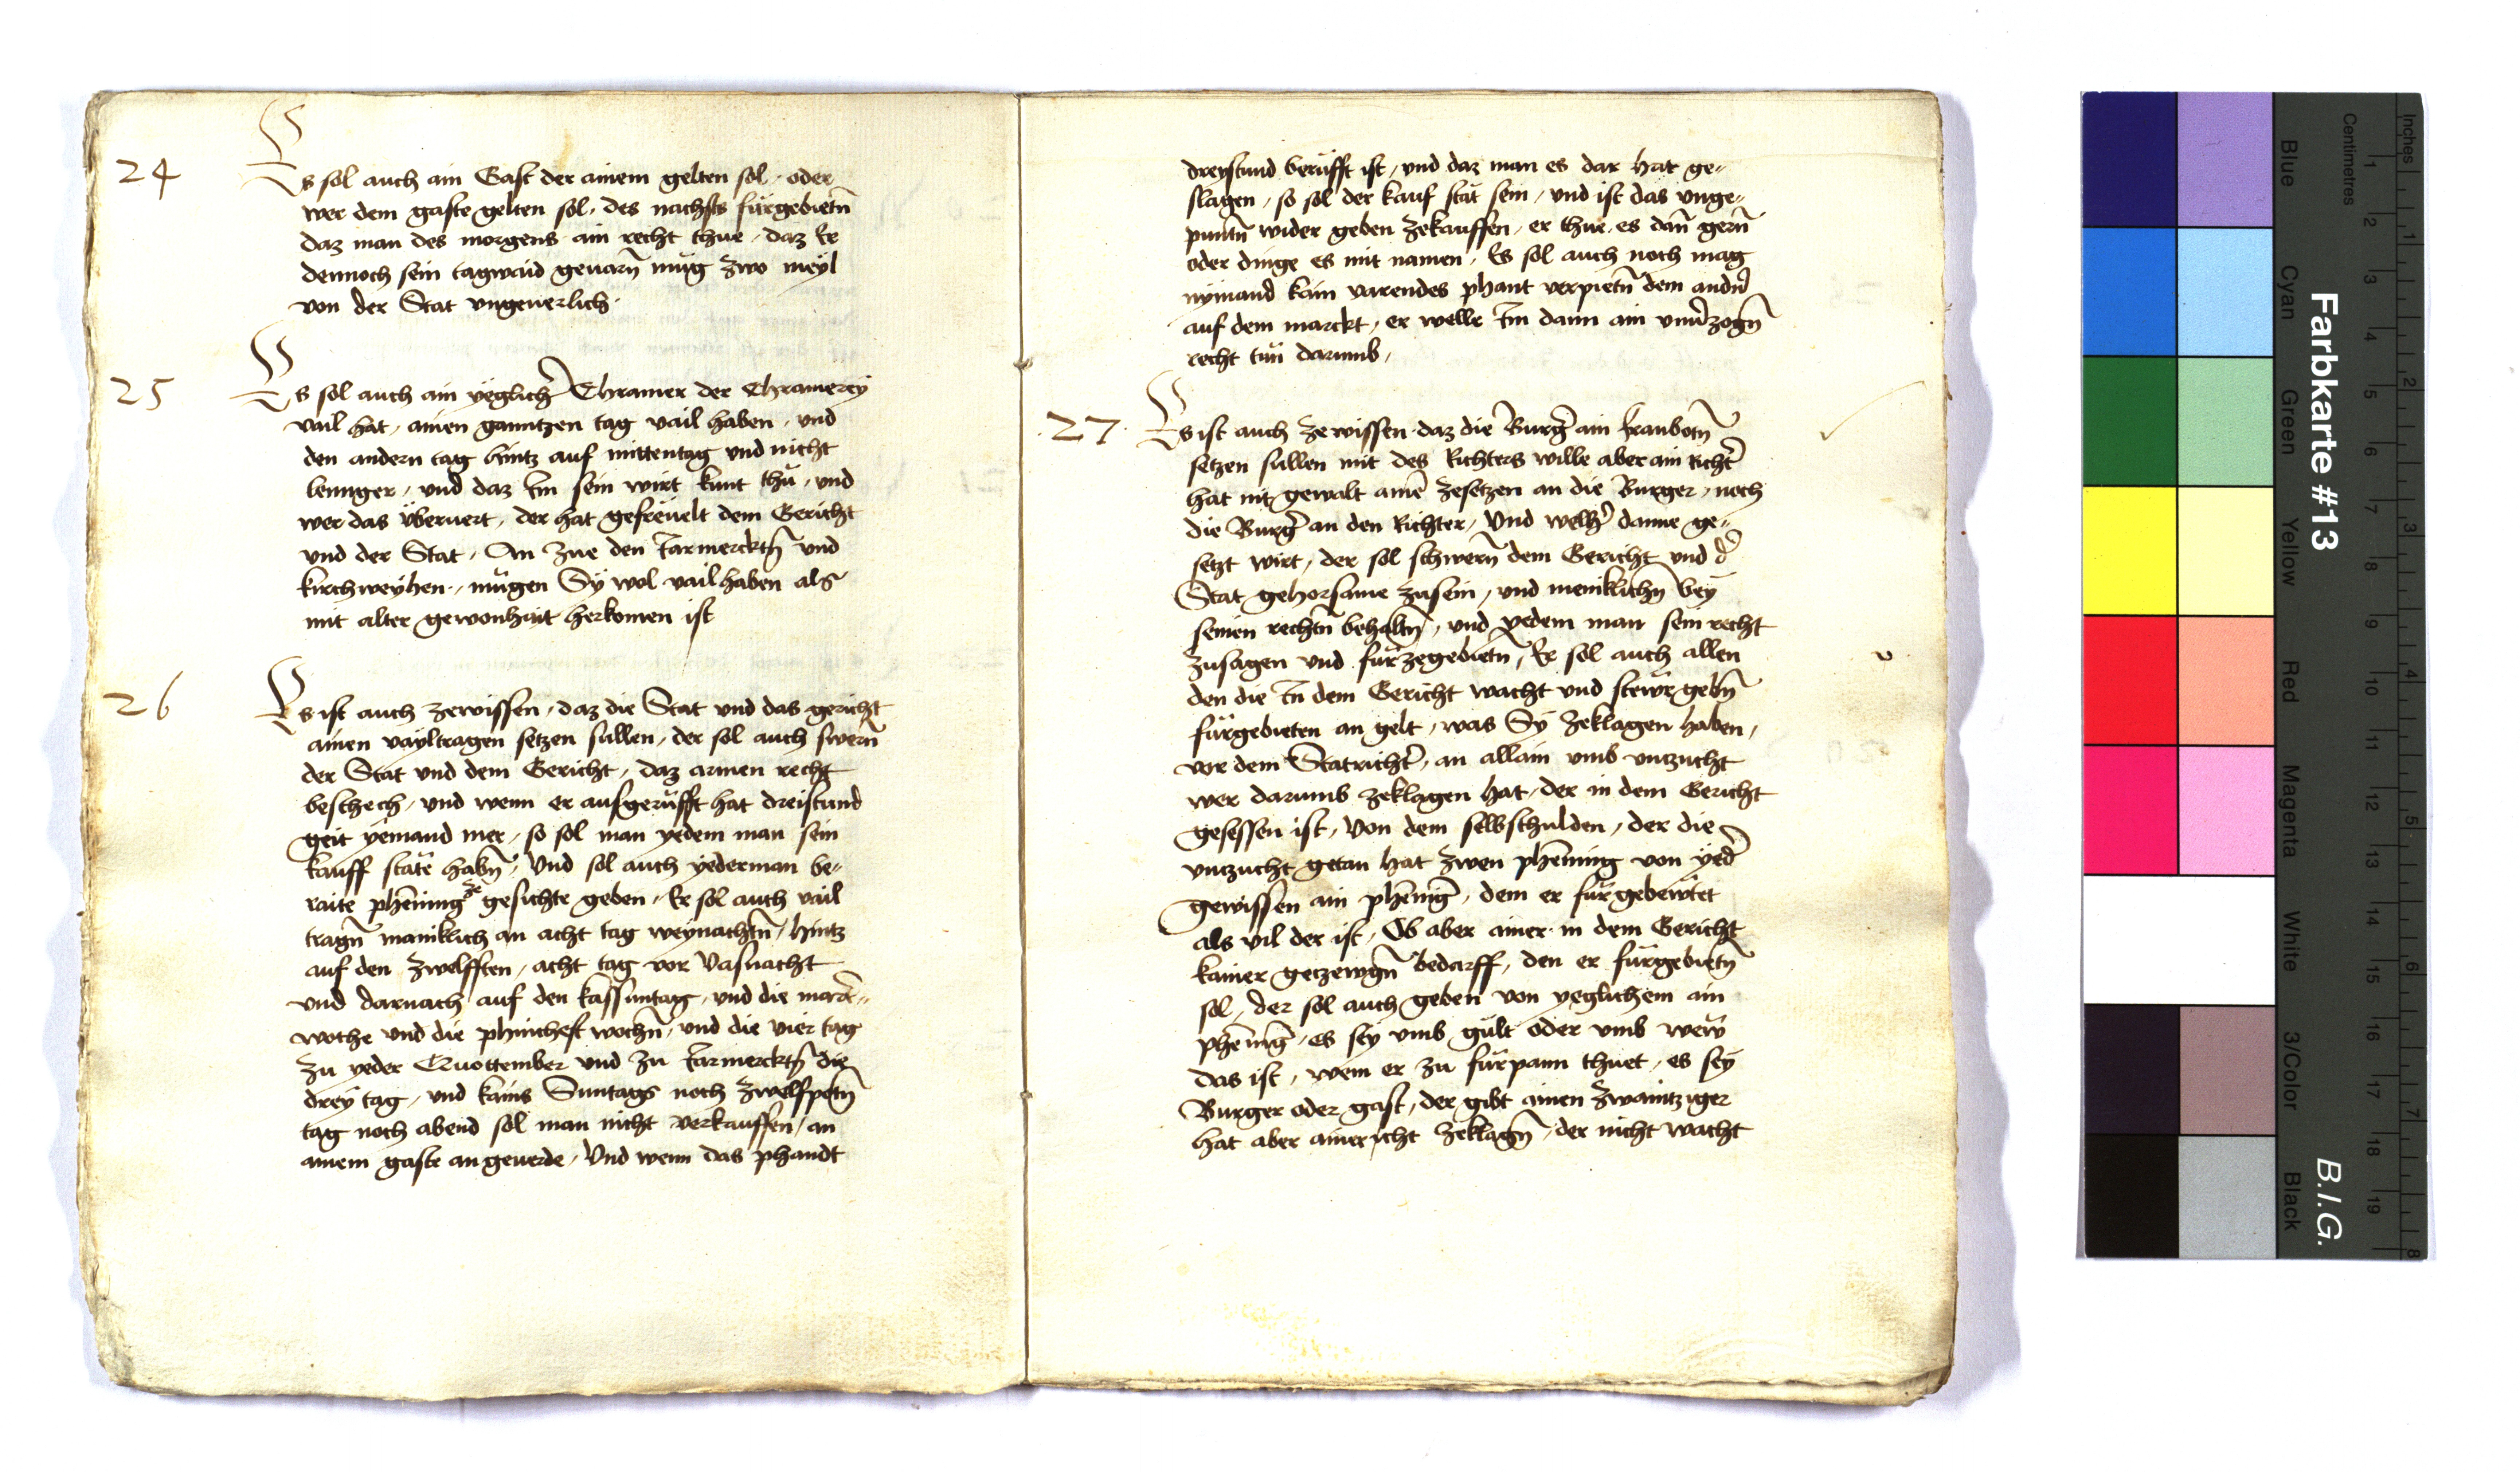 24
Es sol auch ain Gast der ainem gelten sol, oder
wer dem gaste gelten sol, des nachsts fürgebietn̄
daz man des morgens ain recht thue, daz Er
dennoch sein tagwaid geuarn̄ müg zwo meyl
von der Stat ungeuerlich.
25
Es sol auch ain yeglich̄ Chramer der Chramerey
vail hat, ainen ganntzen tag vail haben, und
den andern tag hintz auf mittentag und nicht
lennger, und daz Im sein wirt kunt thŭ, und
wer das überuert, der hat gefreuelt dem Gericht
und der Stat, An zue den Jarmercktn̄ und
kirchweyhen, mügen Sy wol vail haben als
mit alter gewonhait herkomen ist
26
Es ist auch zewissen, daz die Stat und das gericht
ainen vayltragen setzen sullen, der sol auch swern̄
der Stat und dem Gericht, daz armen recht
beschech, und wenn er ausgerüfft hat dreistund
geit yemand mer, so sol man yedem man sein
kauff stäte habn̄, Und sol auch yederman be„
raite phēning ze gesichte geben, Er sol auch vail
tragn̄ maniklich an acht tag weynachtn̄, hintz
auf den zwelfften, acht tag vor Vasnacht
und darnach auf den kassuntag, und die mart„
woche und die phinchest wochn̄, und die vier tag
zu yeder Quottember und zu Jarmercktn̄ die
drey tag, und kains Suntags noch zwelfpotn̄
tag noch abend sol man nicht verkauffen, an
ainem gaste an geuerde, Und wenn das phandt
dreystund berüfft ist, und daz man es dar hat ge„
slagen, so sol der kauf stät sein, und ist das unge„
puntn̄ wider geben zekauffen, er thue es dan̄ gern̄
oder dinge es mit namen, Es sol auch noch mag
nymand kain varendes phant verpietn̄ dem andn̄
auf dem marckt, er welle Im dann ain unūzogn̄
recht tun darumb,
27.
Es ist auch ze wissen daz die Burḡ ain franbotn̄
setzen sullen mit des Richters wille aber ain Richt̄
hat nit gewalt ainē zesetzen an die Burger, noch
die Burḡ an den Richter, Und welh̄ danne ge„
setzt wirt, der sol schwern̄ dem Gericht und d̄
Stat gehorsame zusein, und meniklichn̄ bey
seinen rechtn̄ behaltn̄, und yedem man sein recht
zusagen und fürzegebietn̄, Er sol auch allen
den die In dem Gericht wacht und stewr gebn̄
fürgebieten an gelt, was Sy zeklagen haben,
vor dem Statricht̄, an allain umb unzucht
wer darumb zeklagen hat, der in dem Gericht
gesessen ist, Von dem selbschulden, der die
unzucht getan hat zwen phēnning von yed̄
gewissen ain phēniḡ, dem er fürgebewtet
als vil der ist, Ob aber ainer in dem Gericht
kainer getzewgn̄ bedarff, den er fürgebietn̄
sol, der sol auch geben von yeglichem ain
phēniḡ, es sey umb gült oder umb wew
das ist, wem er zu fürpann thuet, es sey
Burger oder gast, der gibt ainen zwaintziger
hat aber ainer icht zeklagn̄, der nicht wacht
Farbkarte #13
B.I.G.
Centimetres
Inches
Blue
Cyan
Green
Yellow
Red
Magenta
White
3/Color
Black
1
2
3
4
5
6
7
8
9
10
11
12
13
14
15
16
17
18
19
1
2
3
4
5
6
7
8